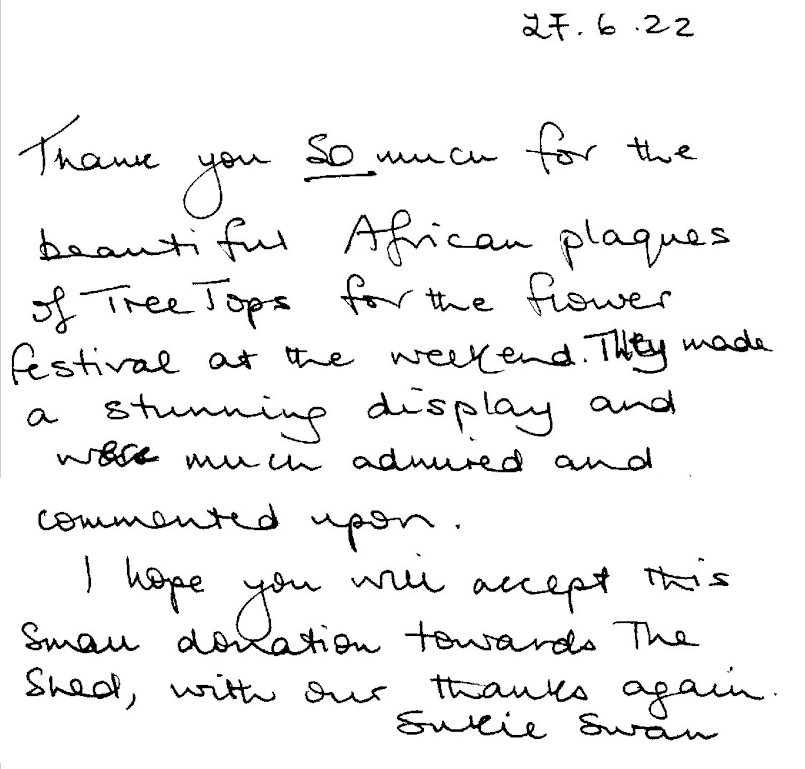 27.6.22
Thank you SO much for the
beautiful African plaques
of Tree Tops for the flower
festival at the weekend. They made
a stunning display and
were much admired and
commented upon.
I hope you will accept this
small donation towards The
Shed, with our thanks again.
Sukie Swan